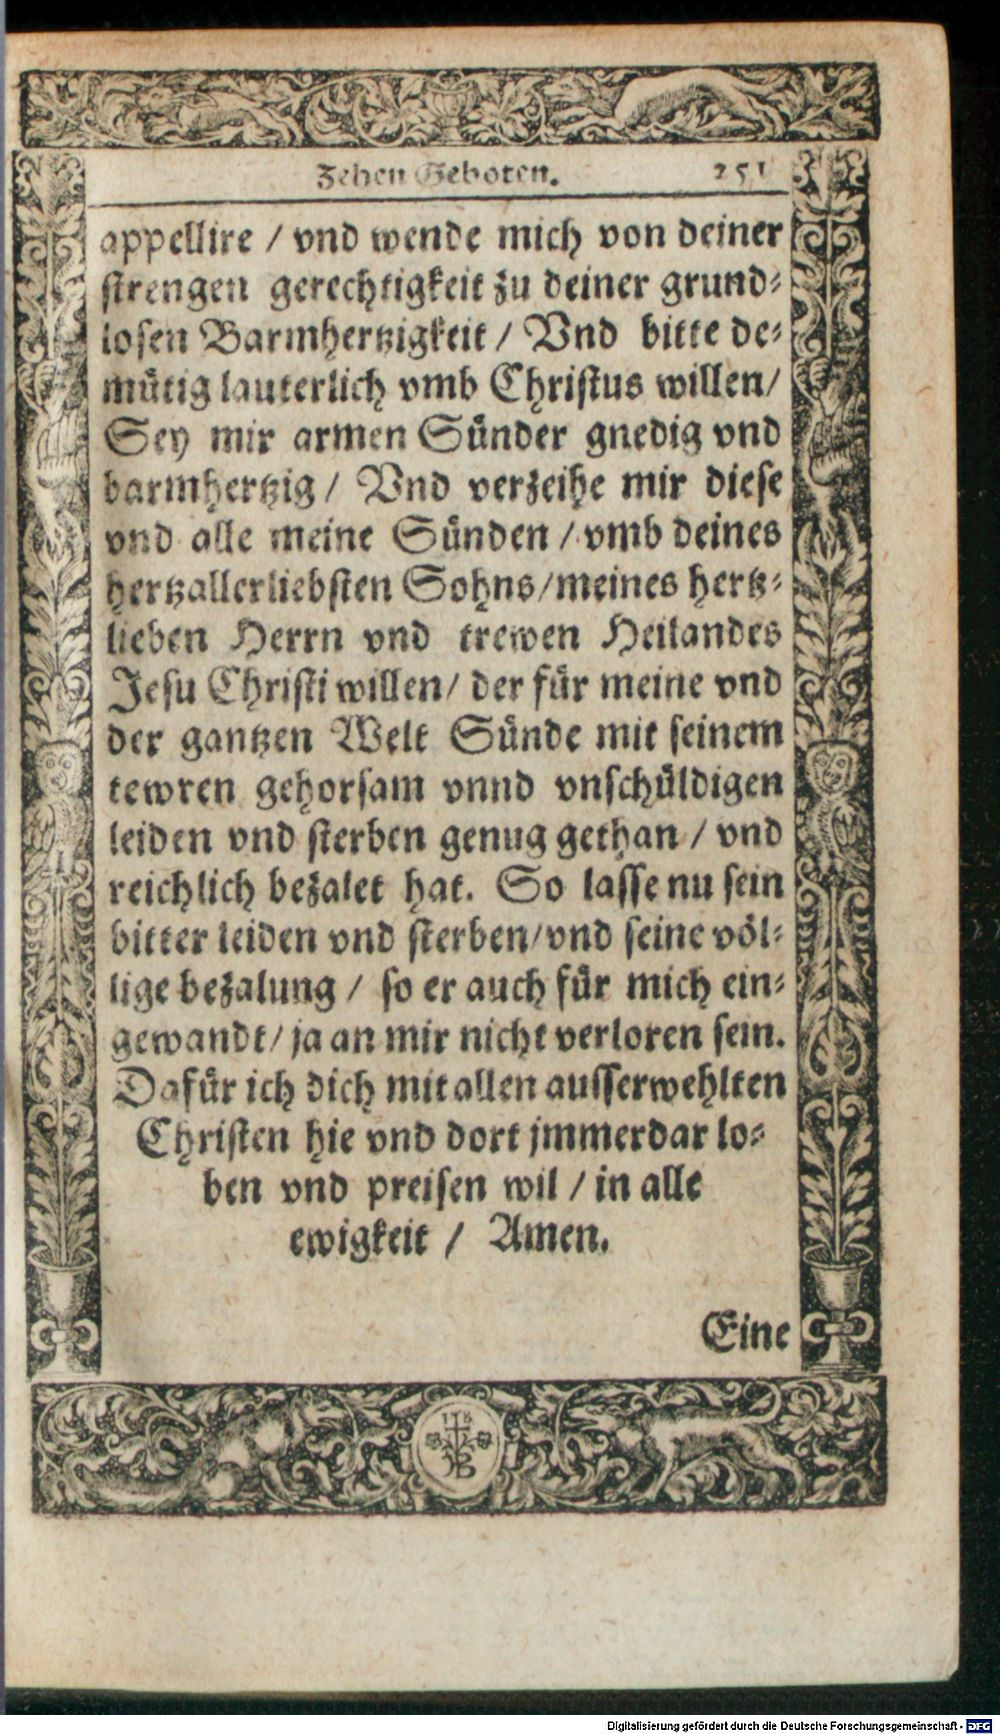 Zehen Geboten. 251
appellire / vnd wende mich von deiner
strengen gerechtigkeit zu deiner grund-
losen Barmhertzigkeit / Vnd bitte de-
mütig lauterlich vmb Christus willen/
Sey mir armen Sünder gnedig vnd
barmhertzig / Vnd verzeihe mir diese
vnd alle meine Sünden / vmb deines
hertzallerliebsten Sohns/meines hertz-
lieben Herrn vnd trewen Heilandes
Jesu Christi willen/ der für meine vnd
der gantzen Welt Sünde mit seinem
tewren gehorsam vnnd vnschüldigen
leiden vnd sterben genug gethan / vnd
reichlich bezalet hat. So lasse nu sein
bitter leiden vnd sterben/vnd seine völ-
lige bezalung / so er auch für mich ein-
gewandt/ ja an mir nicht verloren sein.
Dafür ich dich mit allen ausserwehlten
Christen hie vnd dort jmmerdar lo-
ben vnd preisen wil / in alle
ewigkeit / Amen.
Eine
Digitalisierung gefördert durch die Deutsche Forschungsgemeinschaft - DFG